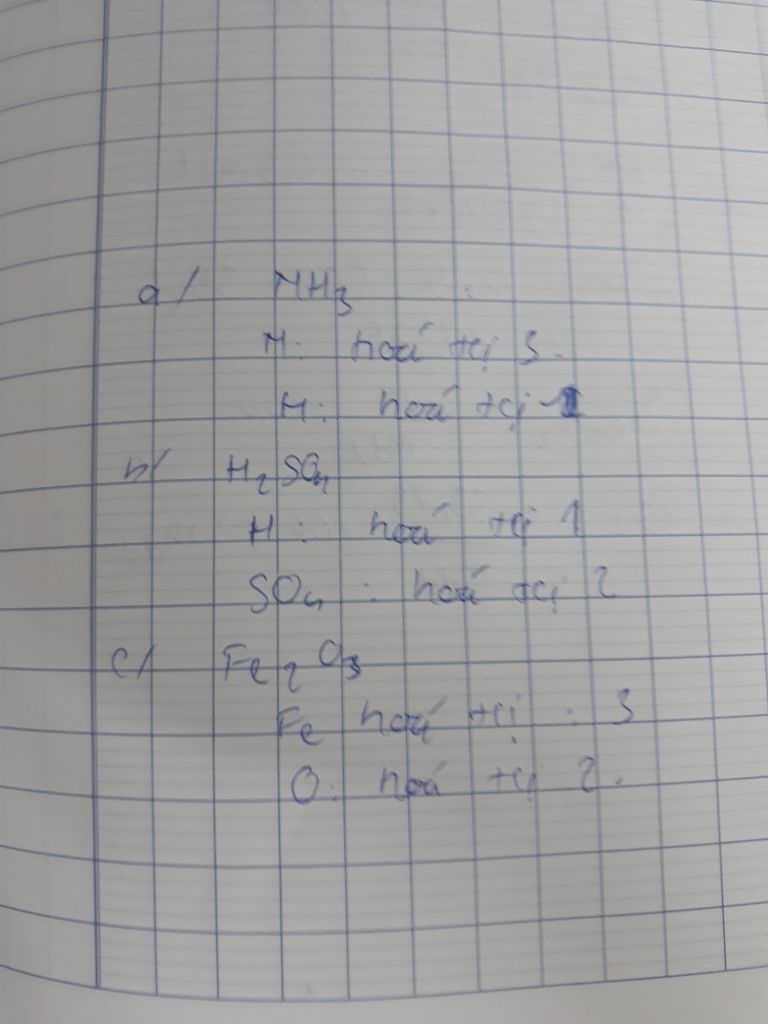 a/ NH3
N: hoá trị 3.
H: hoá trị 1
b/ H2SO4
H: hoá trị 1
SO4: hoá trị 2
c/ Fe2O3
Fe hoá trị: 3
O: hoá trị 2.